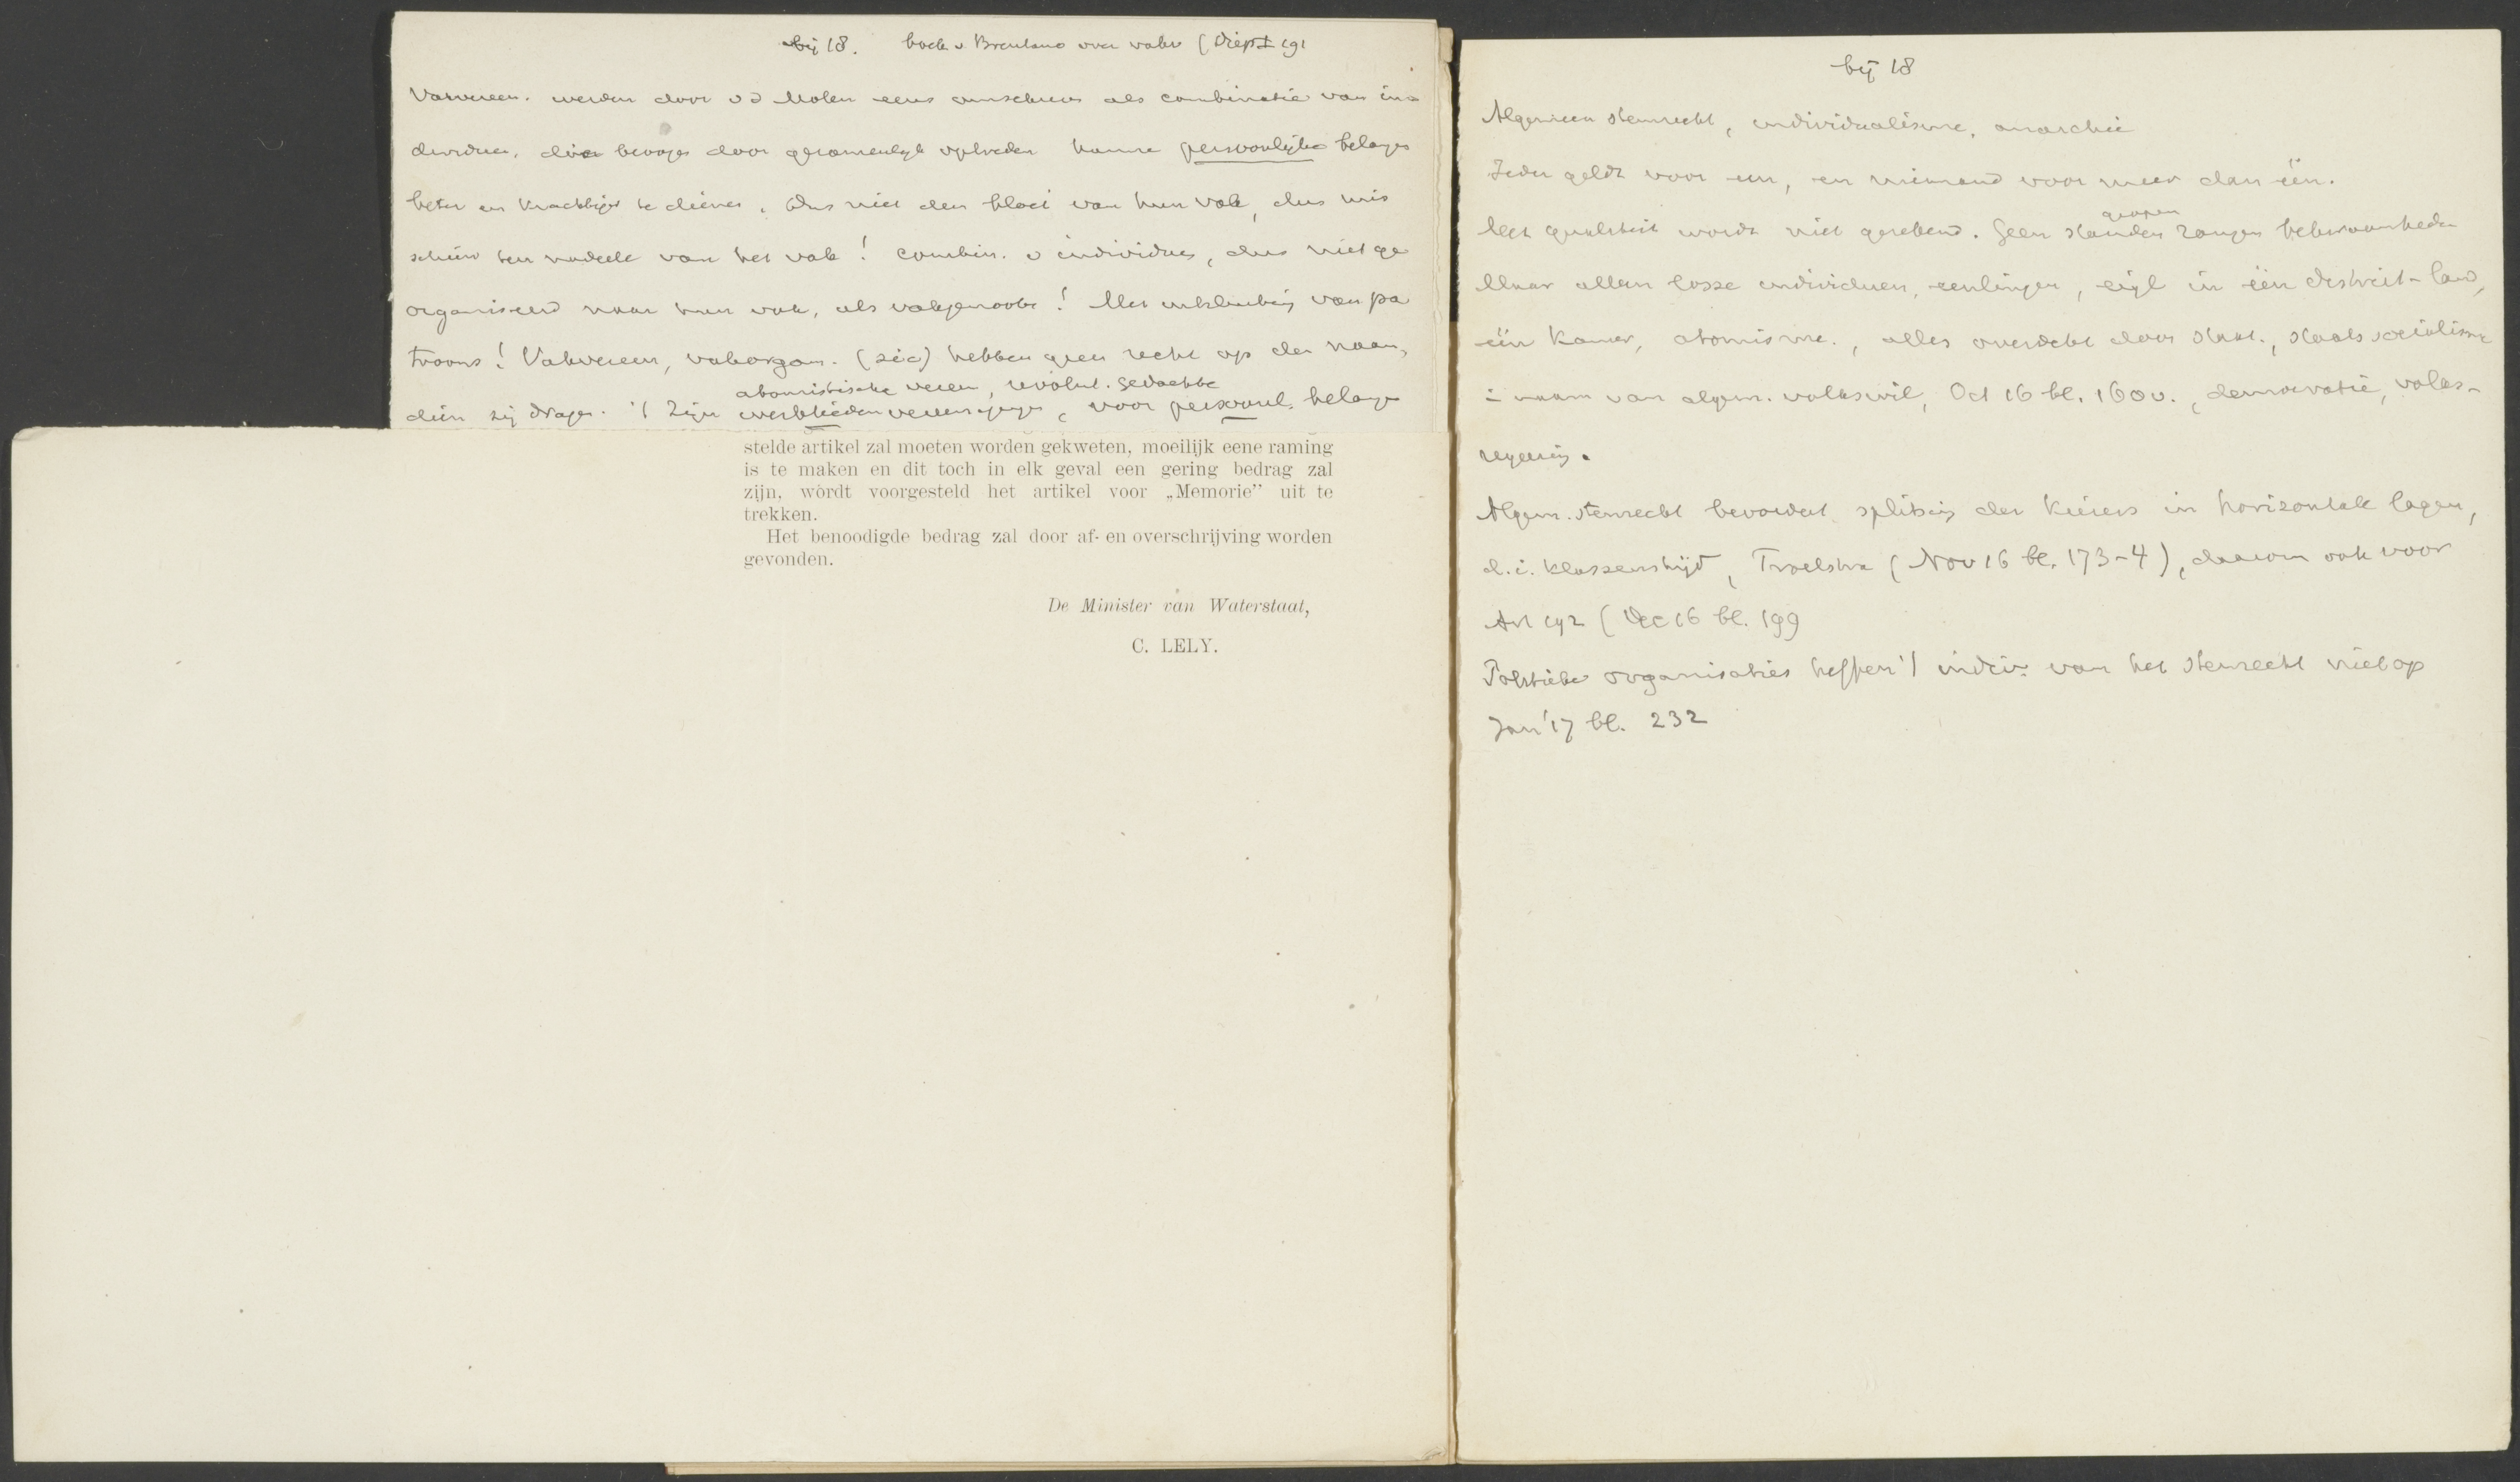 bij 18. boek v Brentano over vakv (Diep I 191
Vakvereen. werden door vd Molen eens omschreven als combinatie van in-
dividuen, die beoogen door gezamenlijk optreden hunne persoonlijke belangen
beter en krachtiger te dienen. Dus niet den bloei van hun vak, dus mis
schien ten nadeele van het vak! Combin. v individuen, dus niet ge
organiseerd naar hun vak, als vakgenooten! Met uitsluiting van pa
troons! Vakvereen, vakorgan. (sic) hebben geen recht op den naam,
atomistische vereen, revolut. gedachte
dien zij dragen. 't Zijn werkliedenvereenigingen, voor persoonl. belangen
stelde artikel zal moeten worden gekweten, moeilijk eene raming
is te maken en dit toch in elk geval een gering bedrag zal
zijn, wordt voorgesteld het artikel voor „Memorie” uit te
trekken.
Het benoodigde bedrag zal door af- en overschrijving worden
gevonden.
De Minister van Waterstaat,
C. LELY.
bij 18
Algemeen stemrecht, individualisme, anarchie
Ieder geldt voor een, en niemand voor meer dan één.
groepen
Met qualiteit wordt niet gerekend. Geen standen rangen bekwaamheden
Maar alleen losse individuen, eenlingen, eigl in één district-land,
één Kamer, atomisme., alles overdekt door Staat., Staatssocialisme
i naam van algem. volkswil, Oct 16 bl. 160v., democratie, volks-
regeering.
Algem. stemrecht bevordert splitsing der kiezers in horizontale lagen,
d.i. klassenstrijd, Troelstra (Nov 16 bl. 173-4), daarom ook voor
Art 192 (Dec 16 bl. 199
Politieke organisaties heffen 't indiv. van het stemrecht niet op
Jan '17 bl. 232